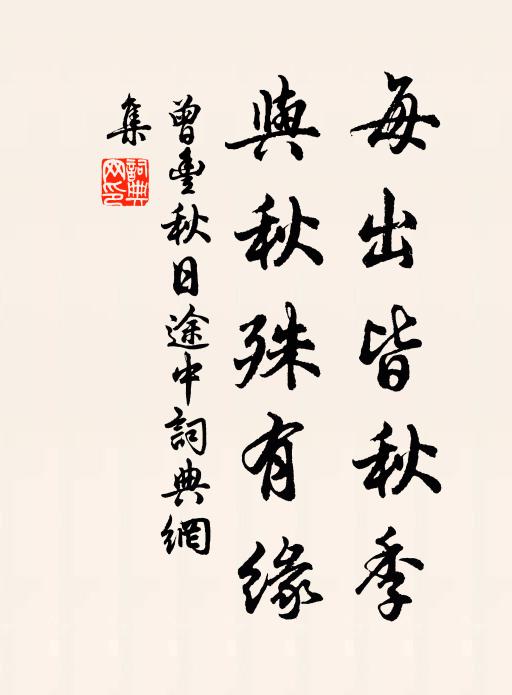 每出皆秋季
與秋殊有緣
曾豐秋日途中詞典網
集
詞典網印